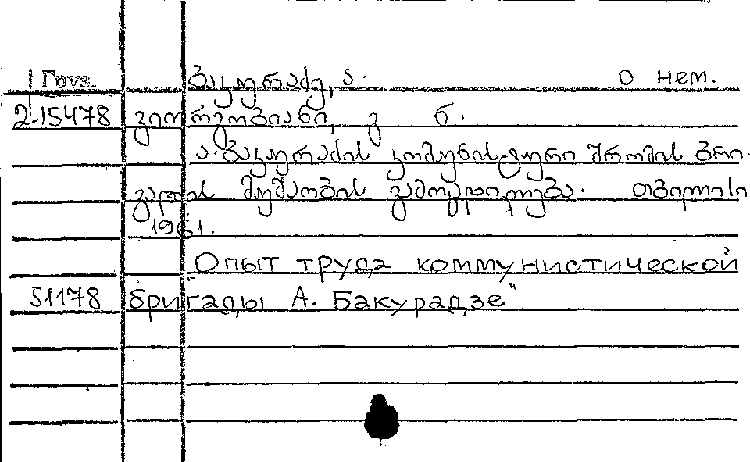 ბაკურაძე, ა. о нем.
2-15478 გიორგობიანი, გ. ნ.
ა. ბაკურაძის კომუნისტური შრომის ბრი-
გადის მუშაობის გამოცდილება. თბილისი
1961.
"Опыт труда коммунистической
51178 бригады А. Бакурадзе"